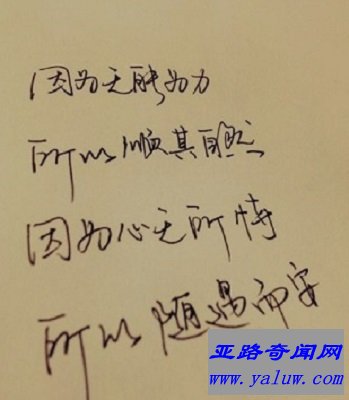 因为无能为力
所以顺其自然
因为心无所恃
所以随遇而安
亚路奇闻网
www.yaluw.com